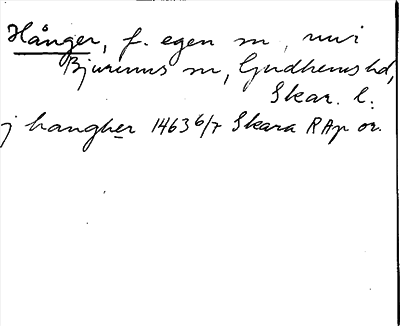 Hånger, f. egen sn, nuv
Bjurums sn, Gudhems hd,
Skar. l.
j hangher 1463 6/7 Skara RAp or.